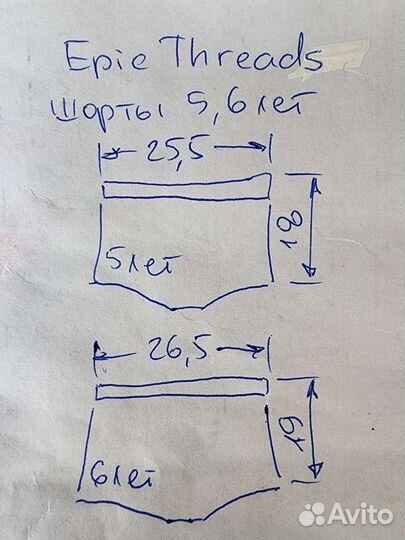 Epic Threads
шорты 5,6 лет
25,5
18
5 лет
26,5
19
6 лет
Avito